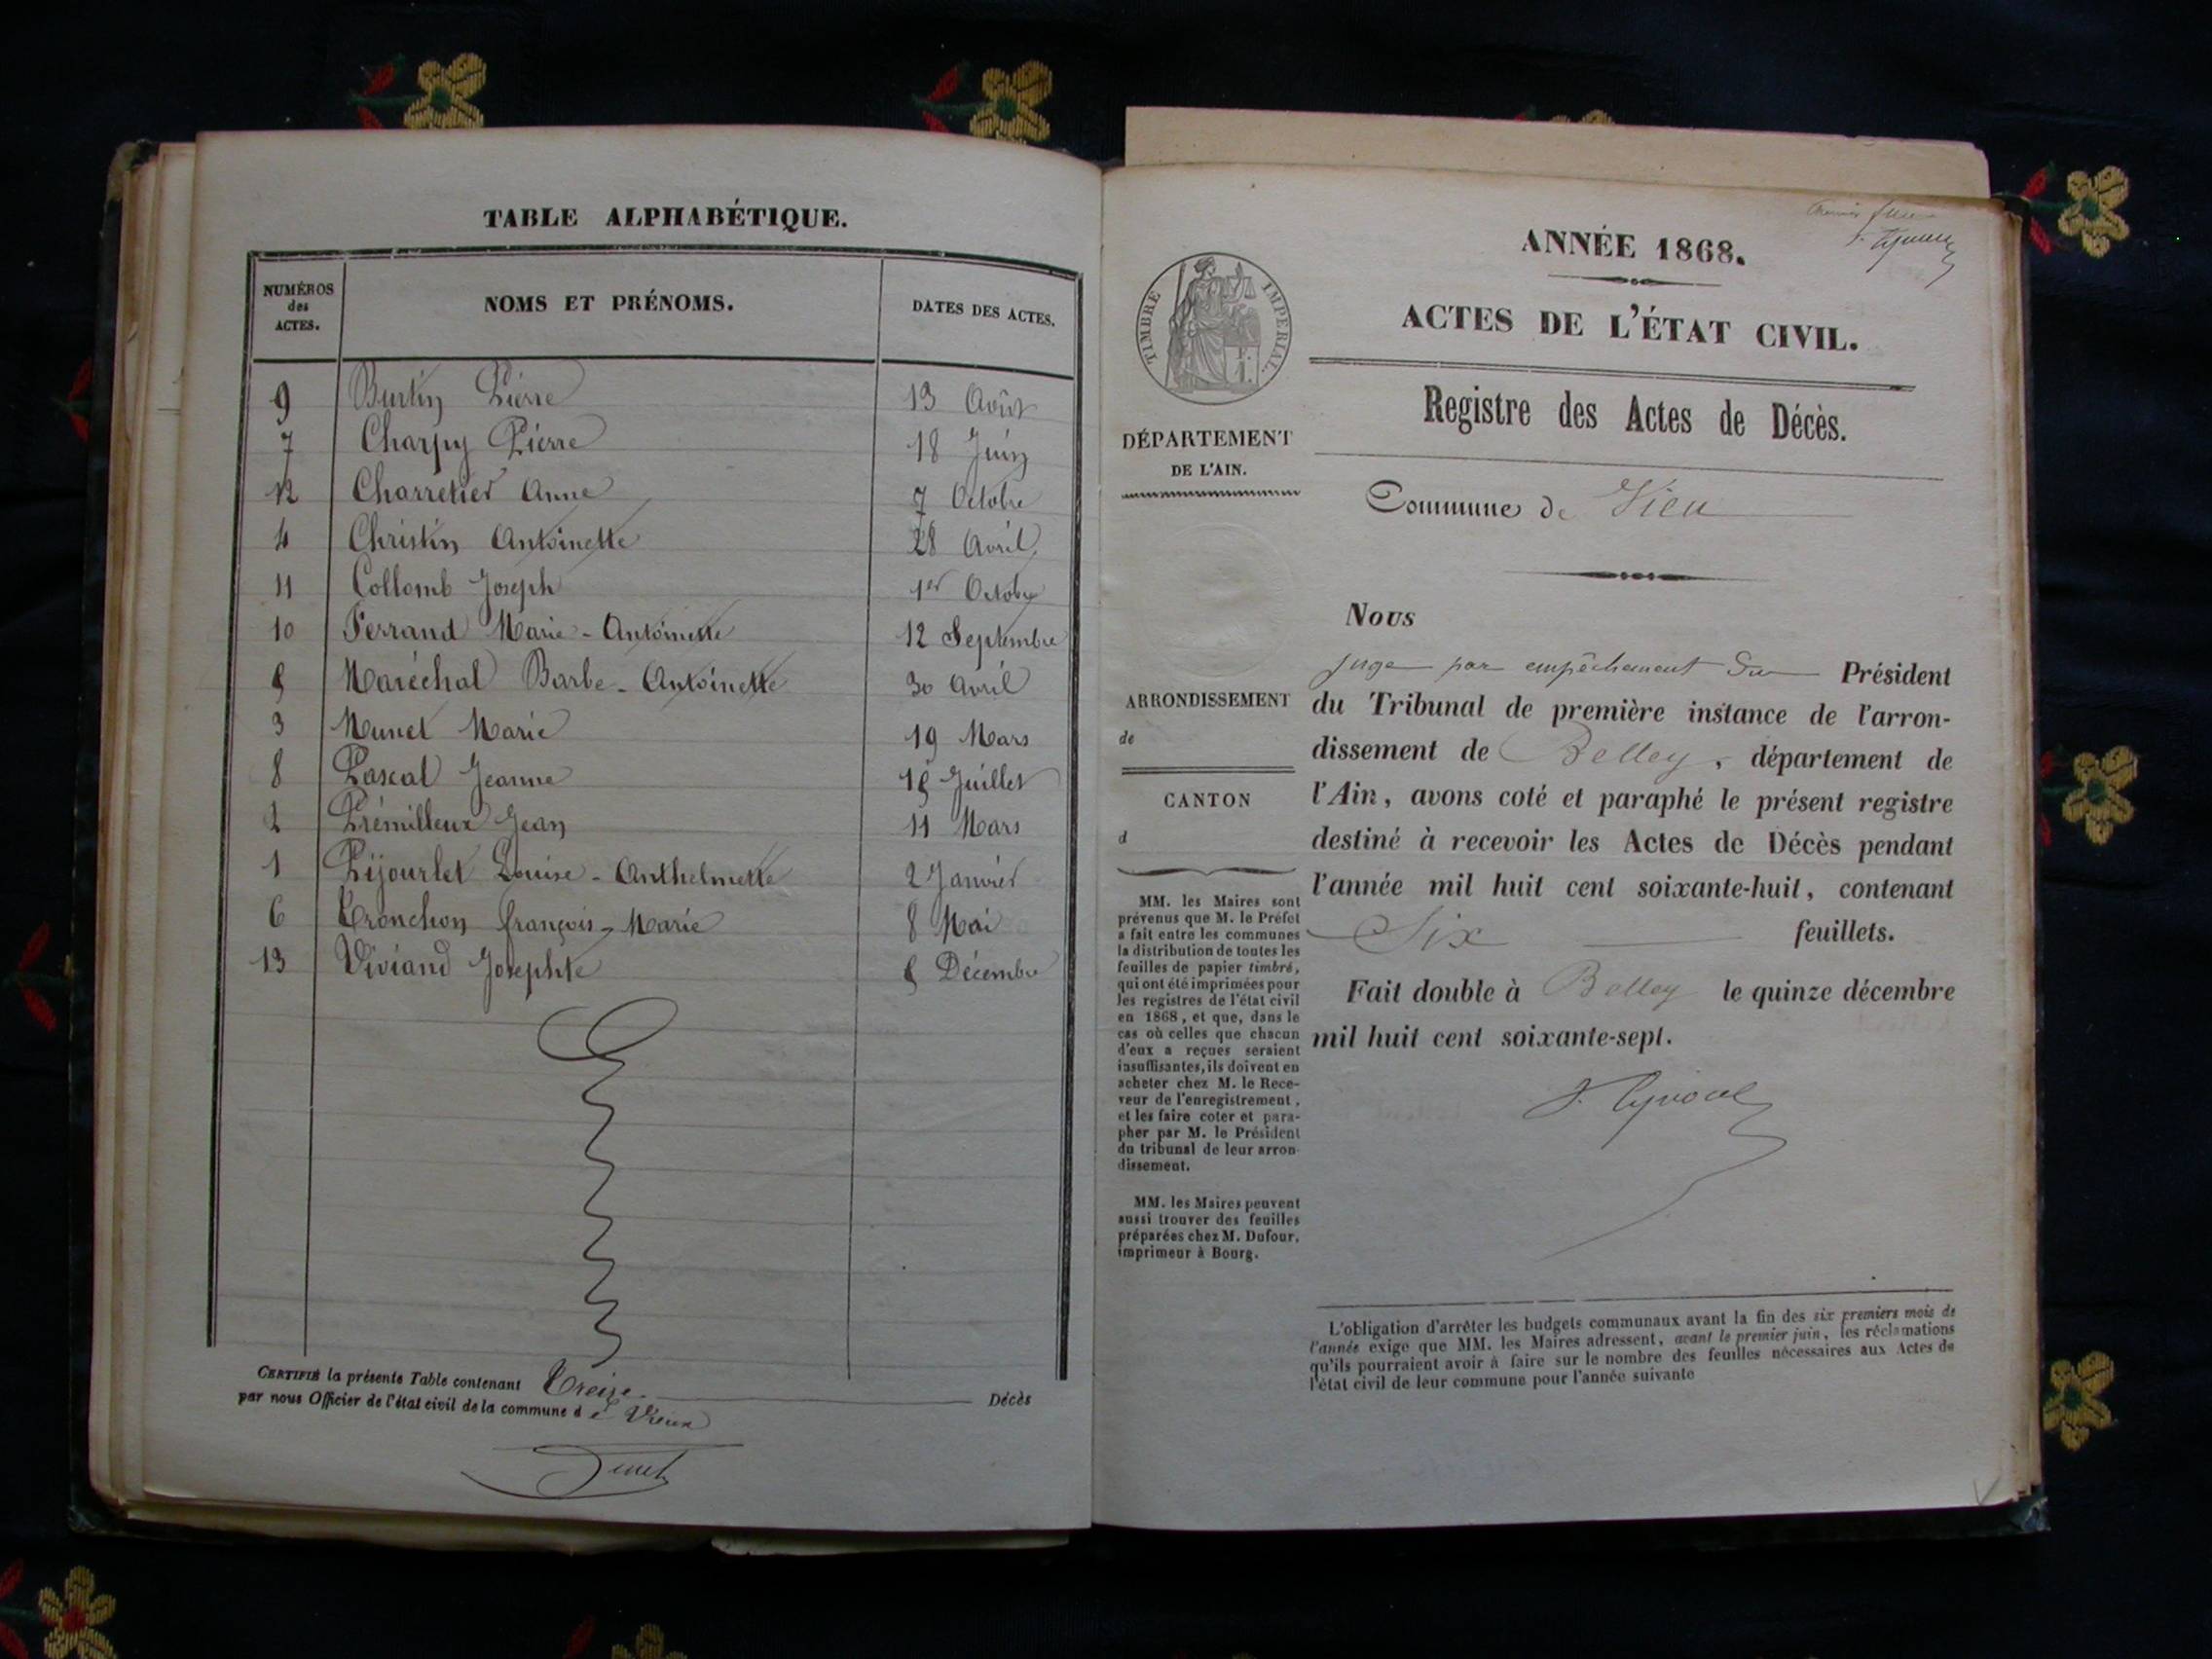 TABLE ALPHABÉTIQUE.
NUMÉROS des ACTES. NOMS ET PRÉNOMS. DATES DES ACTES.
9 Burtin Pierre 13 Août
7 Charpy Pierre 18 Juin
12 Charretier Anne 7 Octobre
4 Christin Antoinette 28 Avril
11 Collomb Joseph 1er Octobre
10 Ferrand Marie-Antoinette 12 Septembre
5 Maréchal Barbe-Antoinette 30 Avril
3 Munet Marie 19 Mars
8 Pascal Jeanne 15 Juillet
2 Prémilleux Jean 11 Mars
1 Pijourlet Louise-Anthelmette 2 Janvier
6 Tronchon François-Marie 8 Mai
13 Viviand Josephte 5 Décembre
CERTIFIÉ la présente Table contenant Treize Décès
par nous Officier de l'état civil de la commune d e Vieux
TIMBRE IMPERIAL.
DÉPARTEMENT
DE L'AIN.
ARRONDISSEMENT
de
CANTON
d
MM. les Maires sont
prévenus que M. le Préfet
a fait entre les communes
la distribution de toutes les
feuilles de papier timbré,
qui ont été imprimées pour
les registres de l'état civil
en 1868, et que, dans le
cas où celles que chacun
d'eux a reçues seraient
insuffisantes, ils doivent en
acheter chez M. le Rece-
veur de l'enregistrement,
et les faire coter et para-
pher par M. le Président
du tribunal de leur arron-
dissement.
MM. les Maires peuvent
aussi trouver des feuilles
préparées chez M. Dufour,
imprimeur à Bourg.
ANNÉE 1868.
ACTES DE L'ÉTAT CIVIL.
Registre des Actes de Décès.
Commune de Vieu
Nous
juge par empêchement du Président
du Tribunal de première instance de l'arron-
dissement de Belley, département de
l'Ain, avons coté et paraphé le présent registre
destiné à recevoir les Actes de Décès pendant
l'année mil huit cent soixante-huit, contenant
Six feuillets.
Fait double à Belley le quinze décembre
mil huit cent soixante-sept.
L'obligation d'arrêter les budgets communaux avant la fin des six premiers mois de
l'année exige que MM. les Maires adressent, avant le premier juin, les réclamations
qu'ils pourraient avoir à faire sur le nombre des feuilles nécessaires aux Actes de
l'état civil de leur commune pour l'année suivante